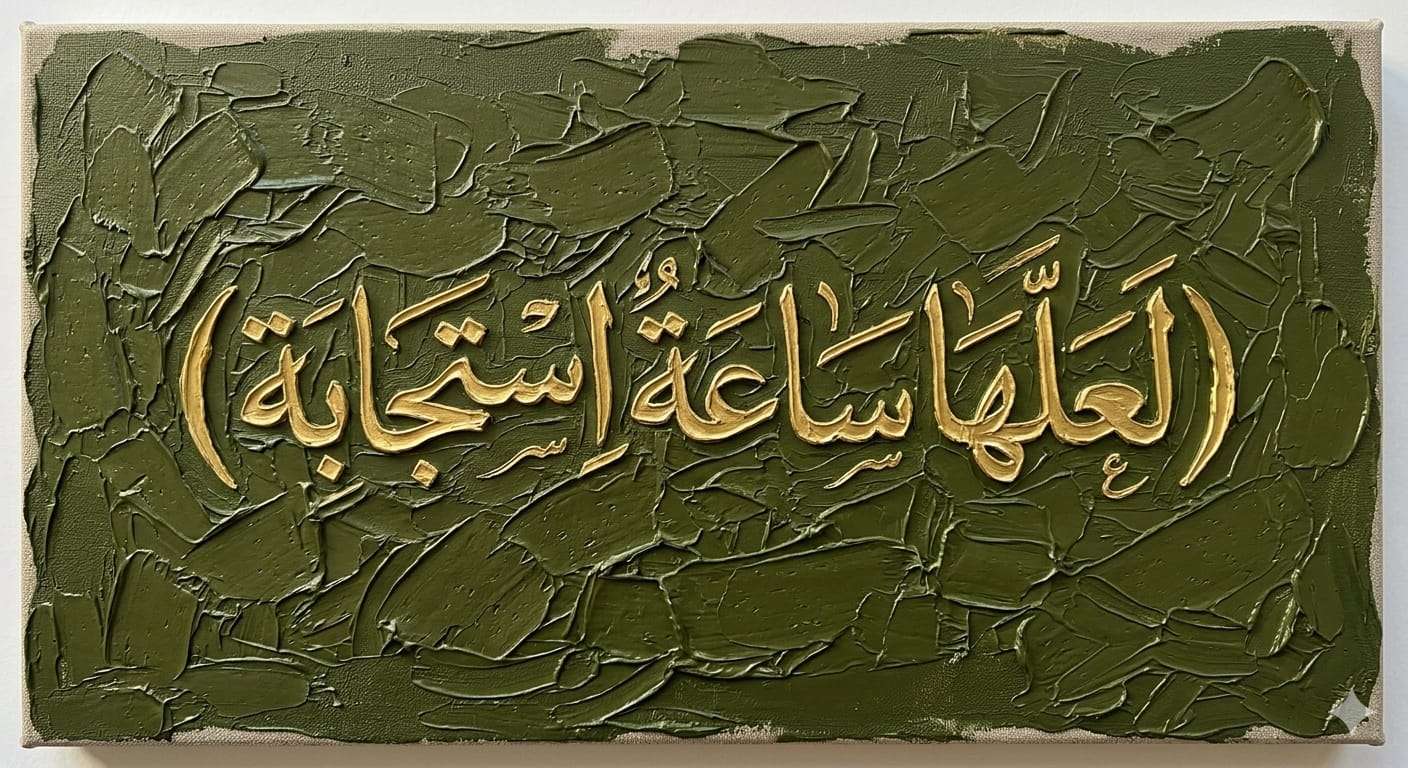 (لَعَلَّهَا سَاعَةُ إِسْتِجَابَة)